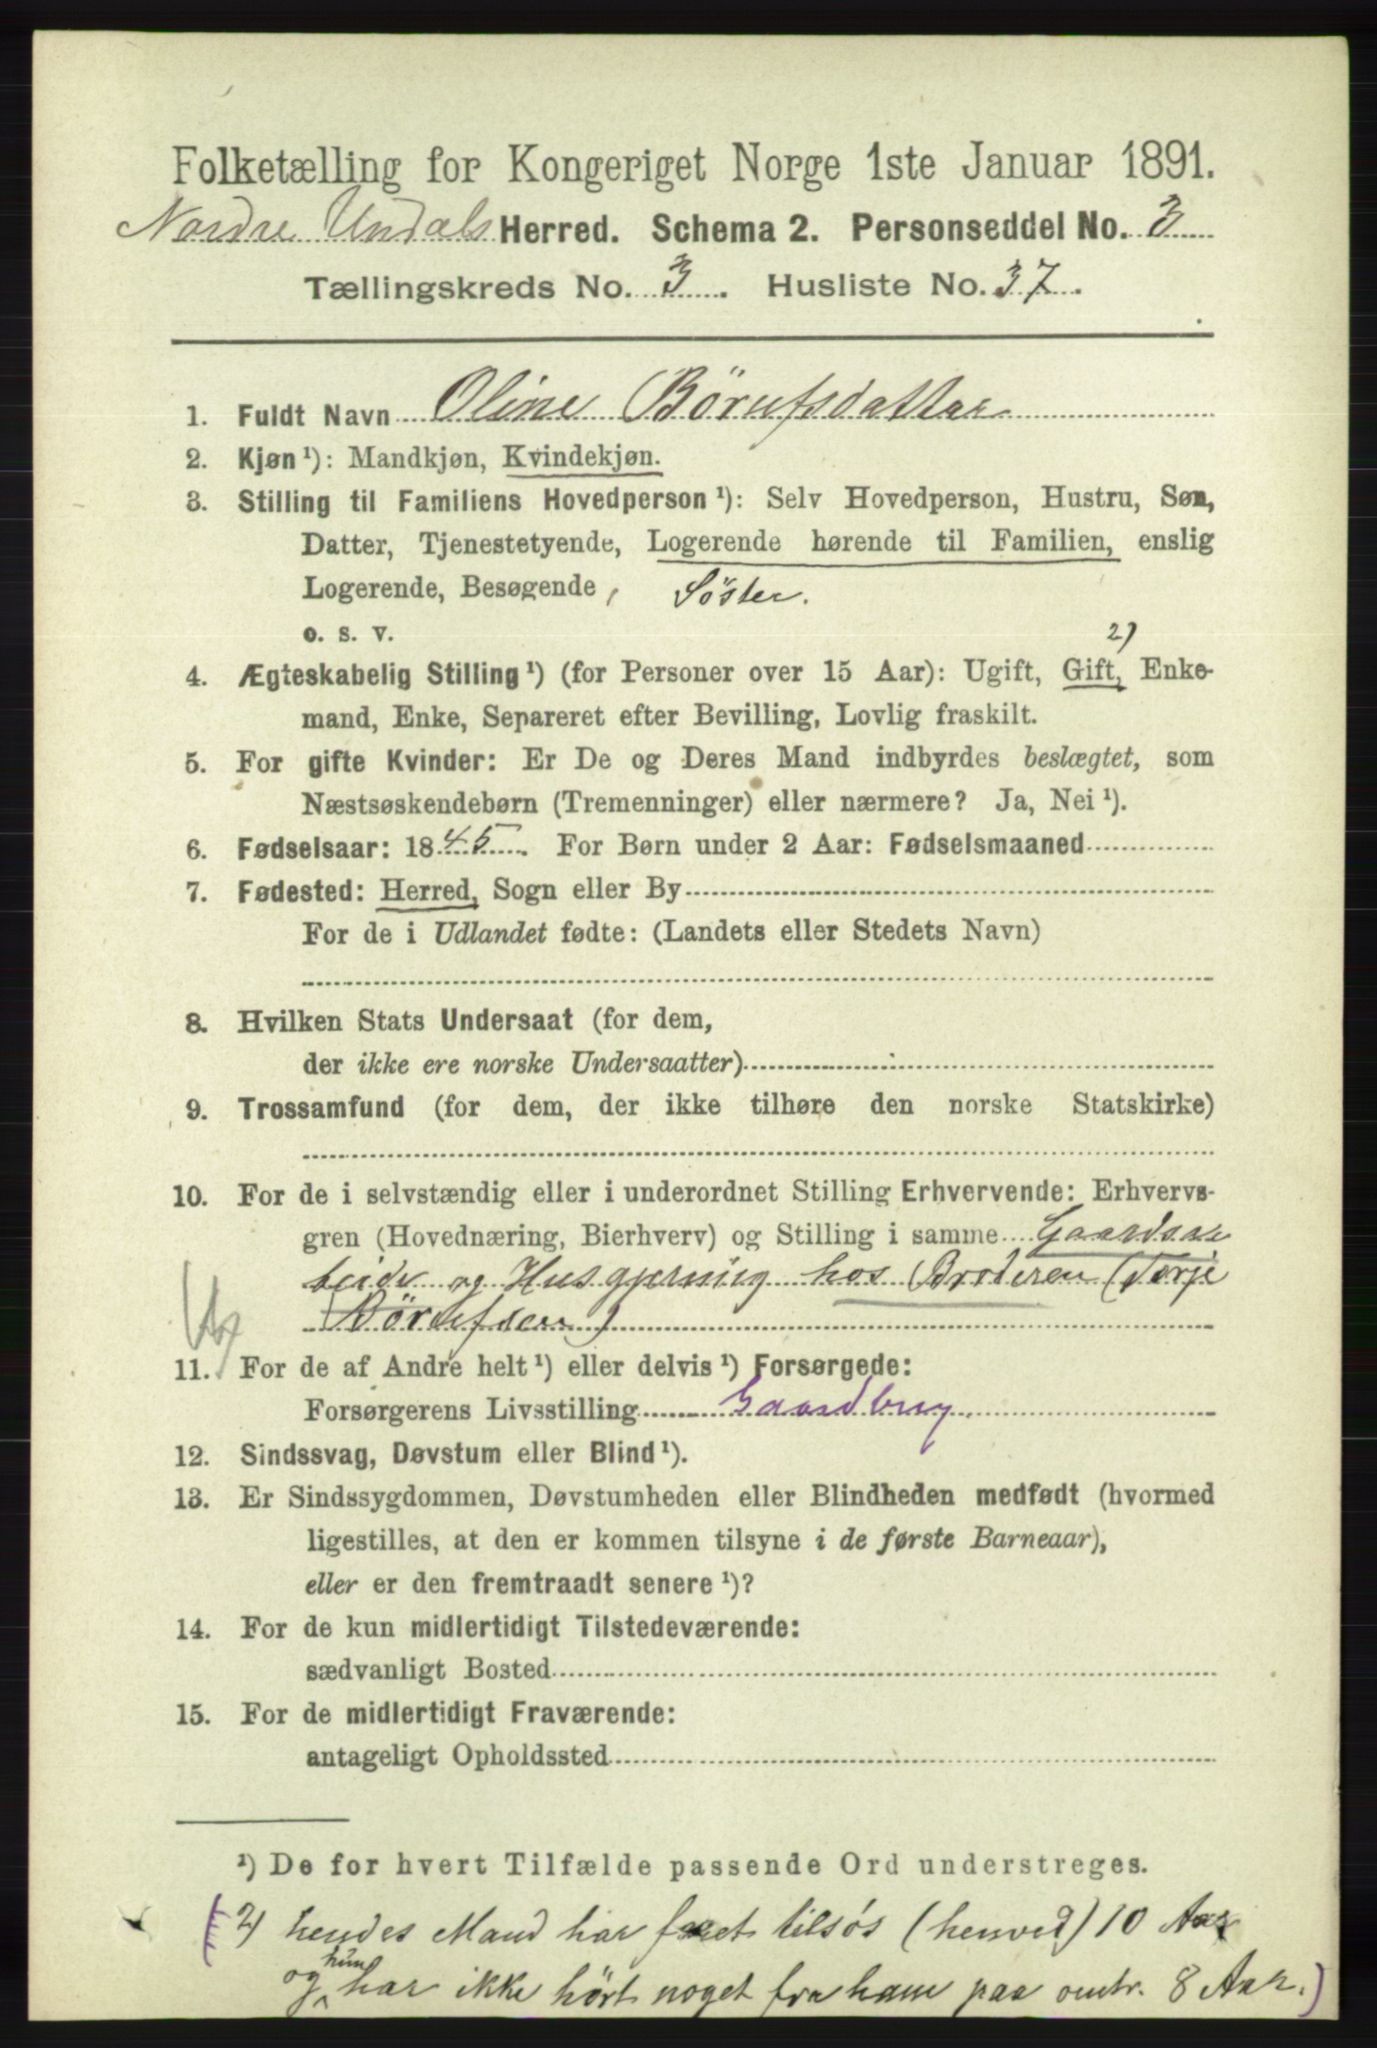 Folketælling for Kongeriget Norge 1ste Januar 1891.
Nordre Undals Herred. Schema 2. Personseddel No. 3
Tællingskreds No. 3. Husliste No. 37.
1. Fuldt Navn Oline Börufsdatter
2. Kjøn ¹): Mandkjøn, Kvindekjøn.
3. Stilling til Familiens Hovedperson ¹): Selv Hovedperson, Hustru, Søn,
Datter, Tjenestetyende, Logerende hørende til Familien, enslig
Logerende, Besøgende, Söster.
o. s. v.
2)
4. Ægteskabelig Stilling ¹) (for Personer over 15 Aar): Ugift, Gift, Enke-
mand, Enke, Separeret efter Bevilling, Lovlig fraskilt.
5. For gifte Kvinder: Er De og Deres Mand indbyrdes beslægtet, som
Næstsøskendebørn (Tremenninger) eller nærmere? Ja, Nei ¹).
6. Fødselsaar: 1845. For Børn under 2 Aar: Fødselsmaaned
7. Fødested: Herred, Sogn eller By
For de i Udlandet fødte: (Landets eller Stedets Navn)
8. Hvilken Stats Undersaat (for dem,
der ikke ere norske Undersaatter)
9. Trossamfund (for dem, der ikke tilhøre den norske Statskirke)
10. For de i selvstændig eller i underordnet Stilling Erhvervende: Erhvervs-
gren (Hovednæring, Bierhverv) og Stilling i samme Gaardsar
beide og Husgjerning hos Broderen (Terje
Börufsen)
11. For de af Andre helt ¹) eller delvis ¹) Forsørgede:
Forsørgerens Livsstilling Gaardbrug
12. Sindssvag, Døvstum eller Blind ¹).
13. Er Sindssygdommen, Døvstumheden eller Blindheden medfødt (hvormed
ligestilles, at den er kommen tilsyne i de første Barneaar),
eller er den fremtraadt senere ¹)?
14. For de kun midlertidigt Tilstedeværende:
sædvanligt Bosted
15. For de midlertidigt Fraværende:
antageligt Opholdssted
¹) De for hvert Tilfælde passende Ord understreges.
(2) hendes Mand har faret tilsös (henved) 10 Aar
og hun har ikke hört noget fra ham paa omtr. 8 Aar.)